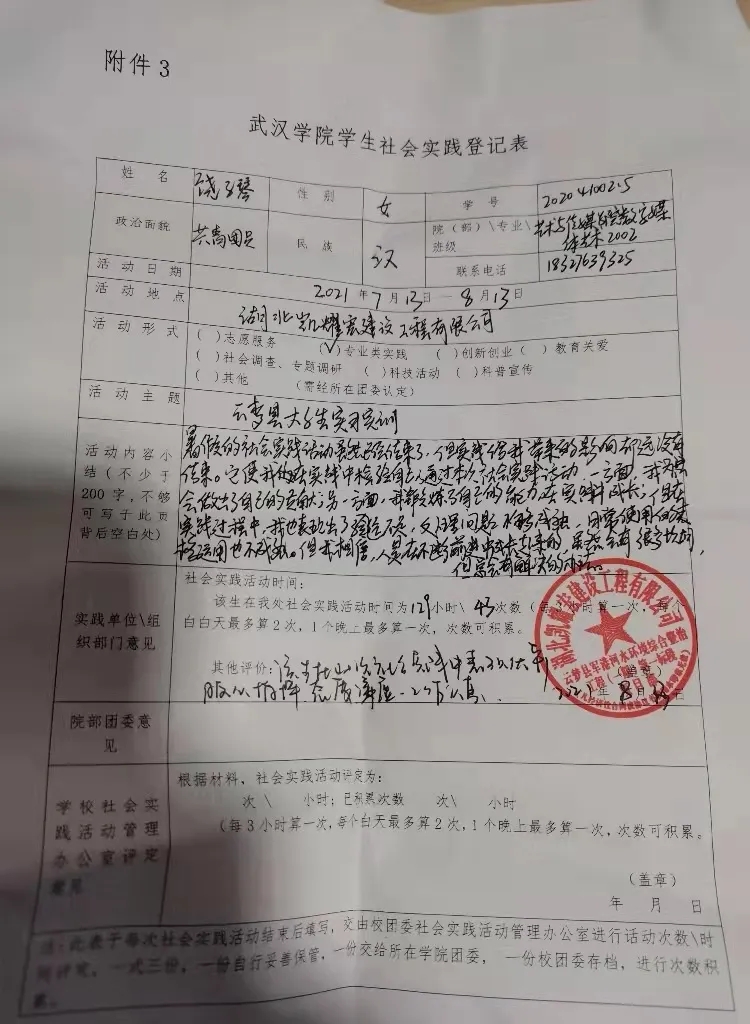 附件3
武汉学院学生社会实践登记表
姓名 饶子琴 性别 女 学号 2020410025
政治面貌 共青团员 民族 汉 院(部)\专业\班级 艺术与传媒学院数字媒体艺术2002
联系电话 18327639325
活动日期 2021年7月13日—8月13日
活动地点 湖北凯耀宏建设工程有限公司
活动形式 ( )志愿服务 (√)专业类实践 ( )创新创业 ( )教育关爱
( )社会调查、专题调研 ( )科技活动 ( )科普宣传
( )其他 (需经所在团委认定)
活动主题 云梦县大学生实习实训
活动内容小结(不少于200字,不够可写于此页背后空白处)
暑假的社会实践活动虽然已经结束了,但实践给我带来的影响却远没有
结束。它使我们在实践中检验自己,通过本次社会实践活动,一方面,我为社
会做出了自己的贡献;另一方面,我锻炼了自己的能力,在实践中成长;但在
实践过程中,我也表现出了经验不足,处理问题不够成熟,
运用也不成熟。但我相信,人是在不断前进中成长起来的,虽然会有很多坎坷,
但总会有解决的办法。
实践单位\组织部门意见
社会实践活动时间:
该生在我处社会实践活动时间为129小时\43次数(每3小时算一次,每个
白白天最多算2次,1个晚上最多算一次,次数可积累。
其他评价:该生在此次社会实践中表现优异
服从指挥 态度谦虚、工作认真、
(盖章)
2021年8月13日
湖北凯耀宏建设工程有限公司
院部团委意见
学校社会实践活动管理办公室评定意见
根据材料,社会实践活动评定为:
次\ 小时;已积累次数 次\ 小时
(每3小时算一次,每个白天最多算2次,1个晚上最多算一次,次数可积累。
(盖章)
年 月 日
注:此表于每次社会实践活动结束后填写,交由校团委社会实践活动管理办公室进行活动次数\时
间评定,一式三份,一份自行妥善保管,一份交给所在学院团委, 一份校团委存档,进行次数积
累。